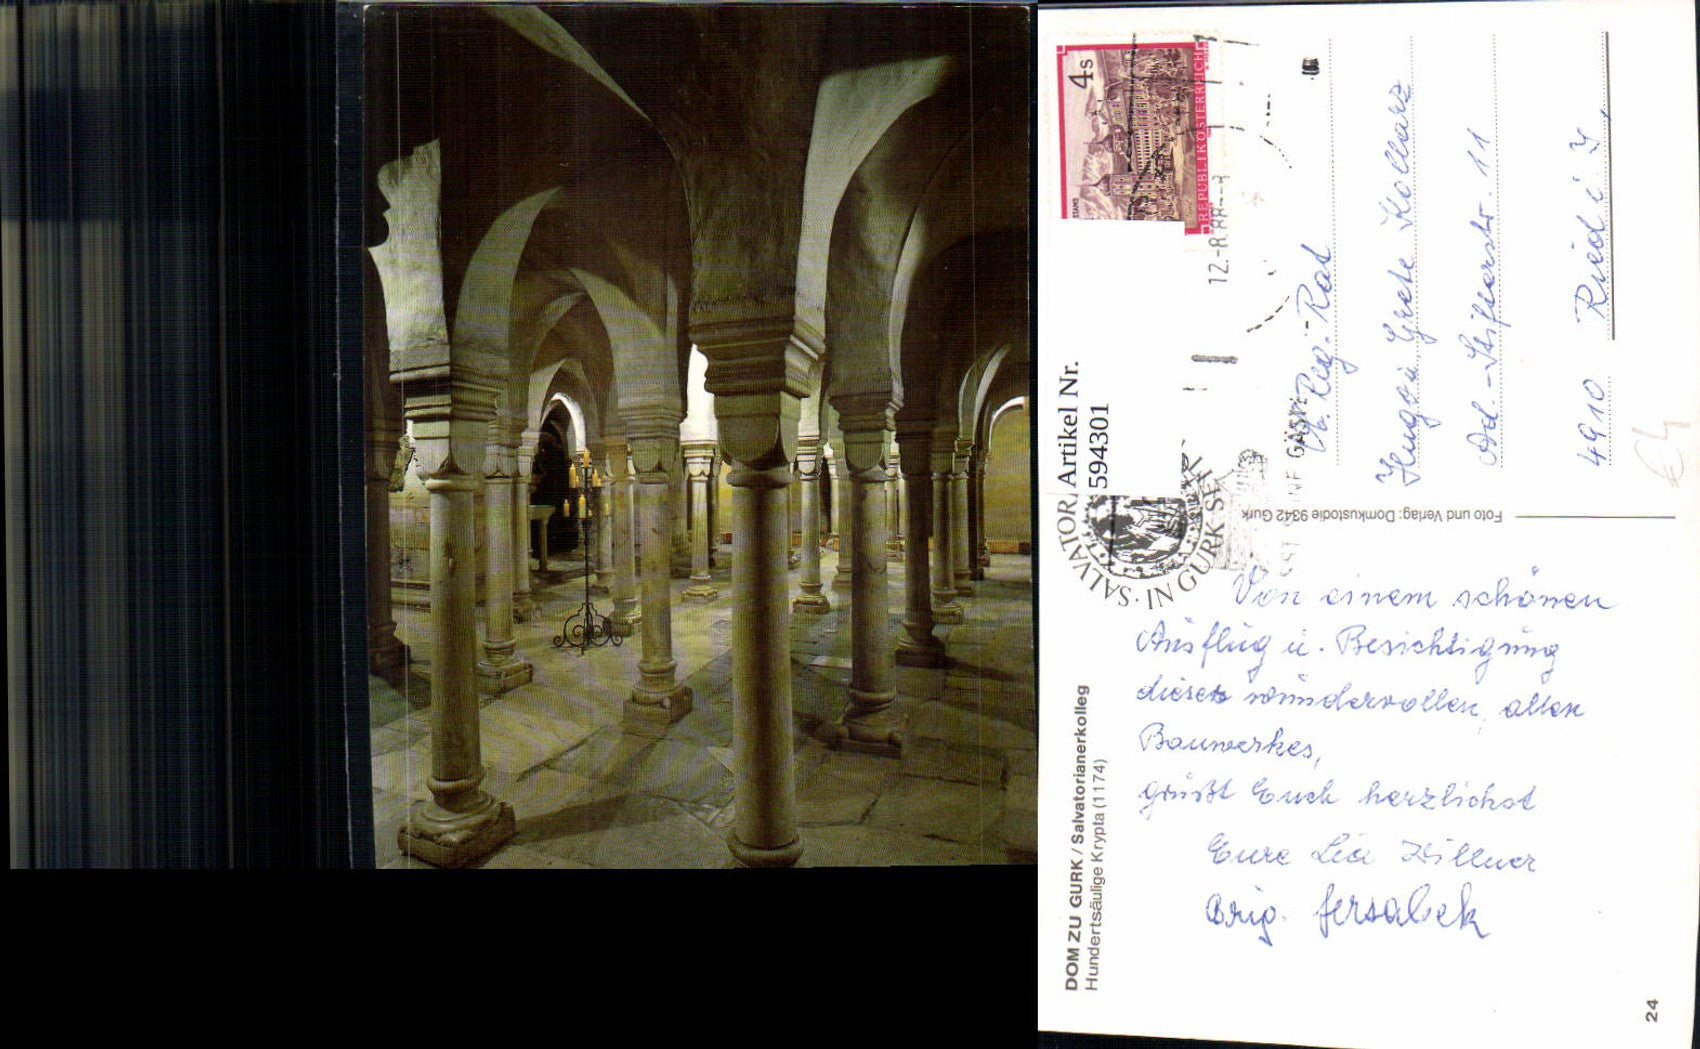 DOM ZU GURK / Salvatorianerkolleg
Hundertsäulige Krypta (1174)
Von einem schönen
Ausflug u. Besichtigung
dieses wundervollen, alten
Bauwerkes,
grüßt Euch herzlichst
Eure Lia
Brig.
Foto und Verlag: Domkustodie 9342 Gurk
24
Artikel Nr.
594301
4s
REPUBLIK ÖSTERREICH
STAMS
12.-8.88--
SALVATOR
IN GURK
Reg. Rat
Hugo u. Grete Kollarz
Ad.-Stifterstr. 11
4910 Ried i. I.